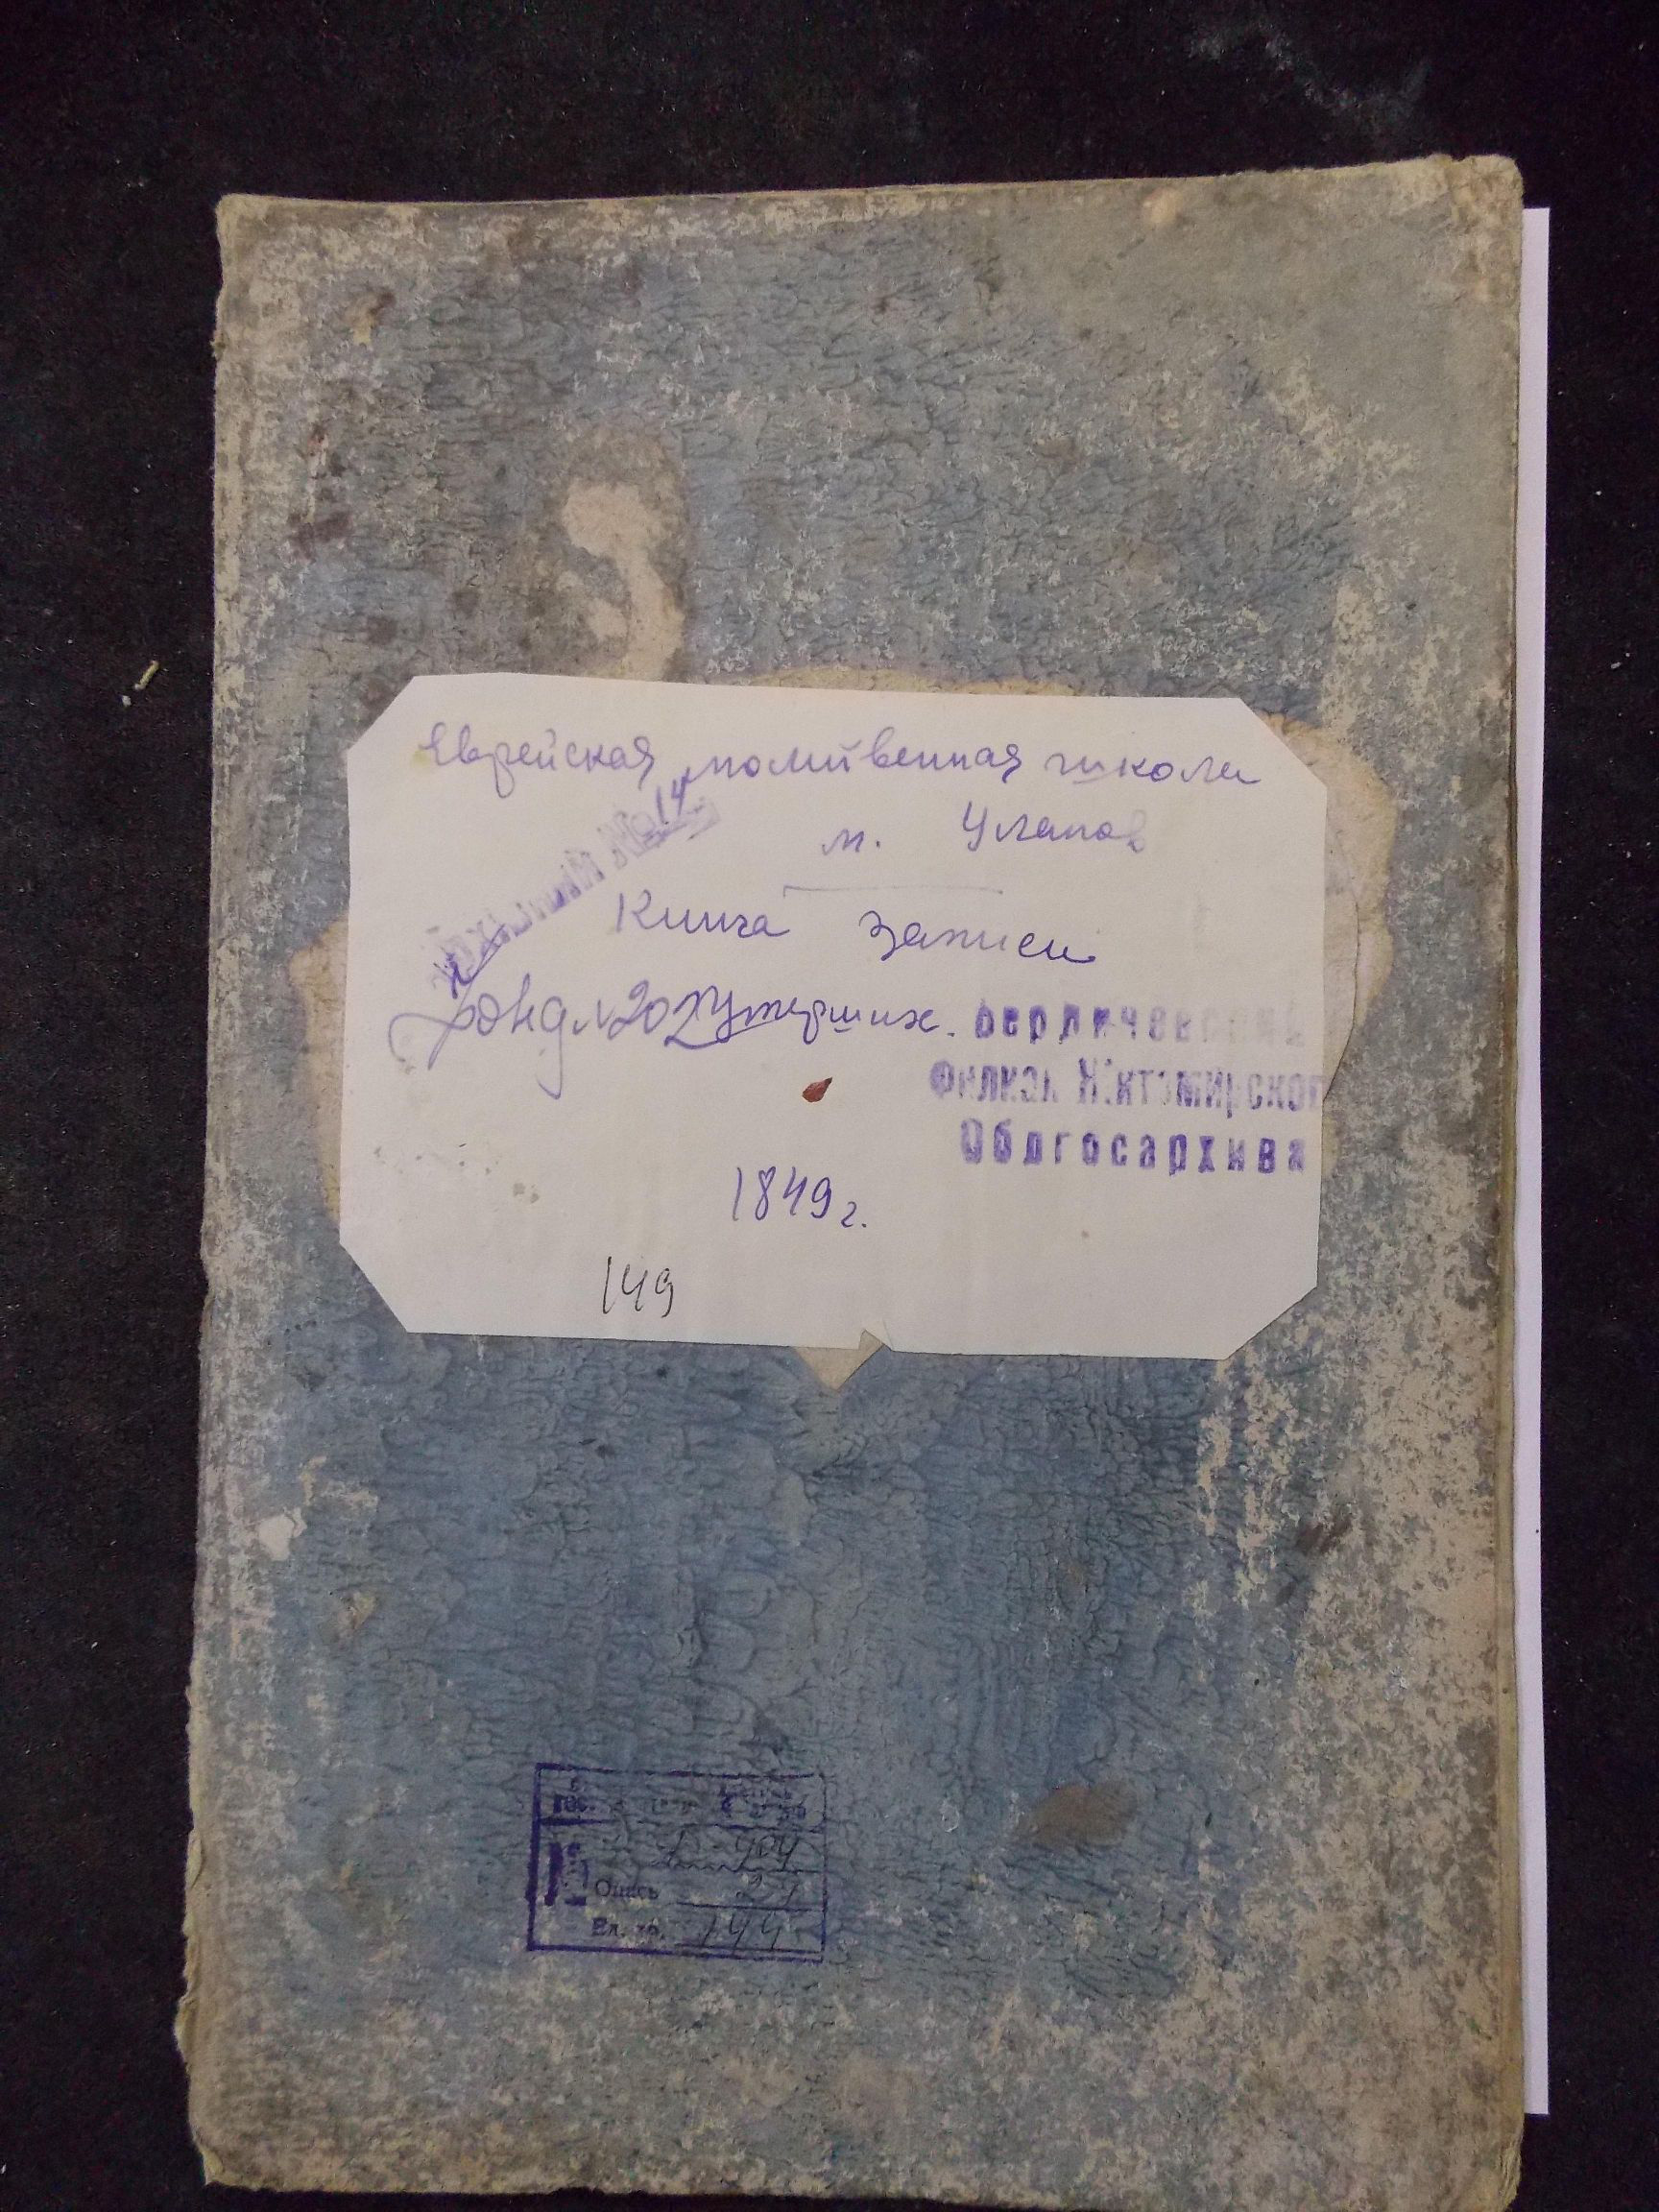 Еврейская молитвенная школа
м. Уланов
Архивный № 14
Книга записи
Фонд № 202 умерших.
Бердичевский
Филиал Житомирского
Облгосархива
1849 г.
149
гос.
904
Опись 24
Ед. хр. 144